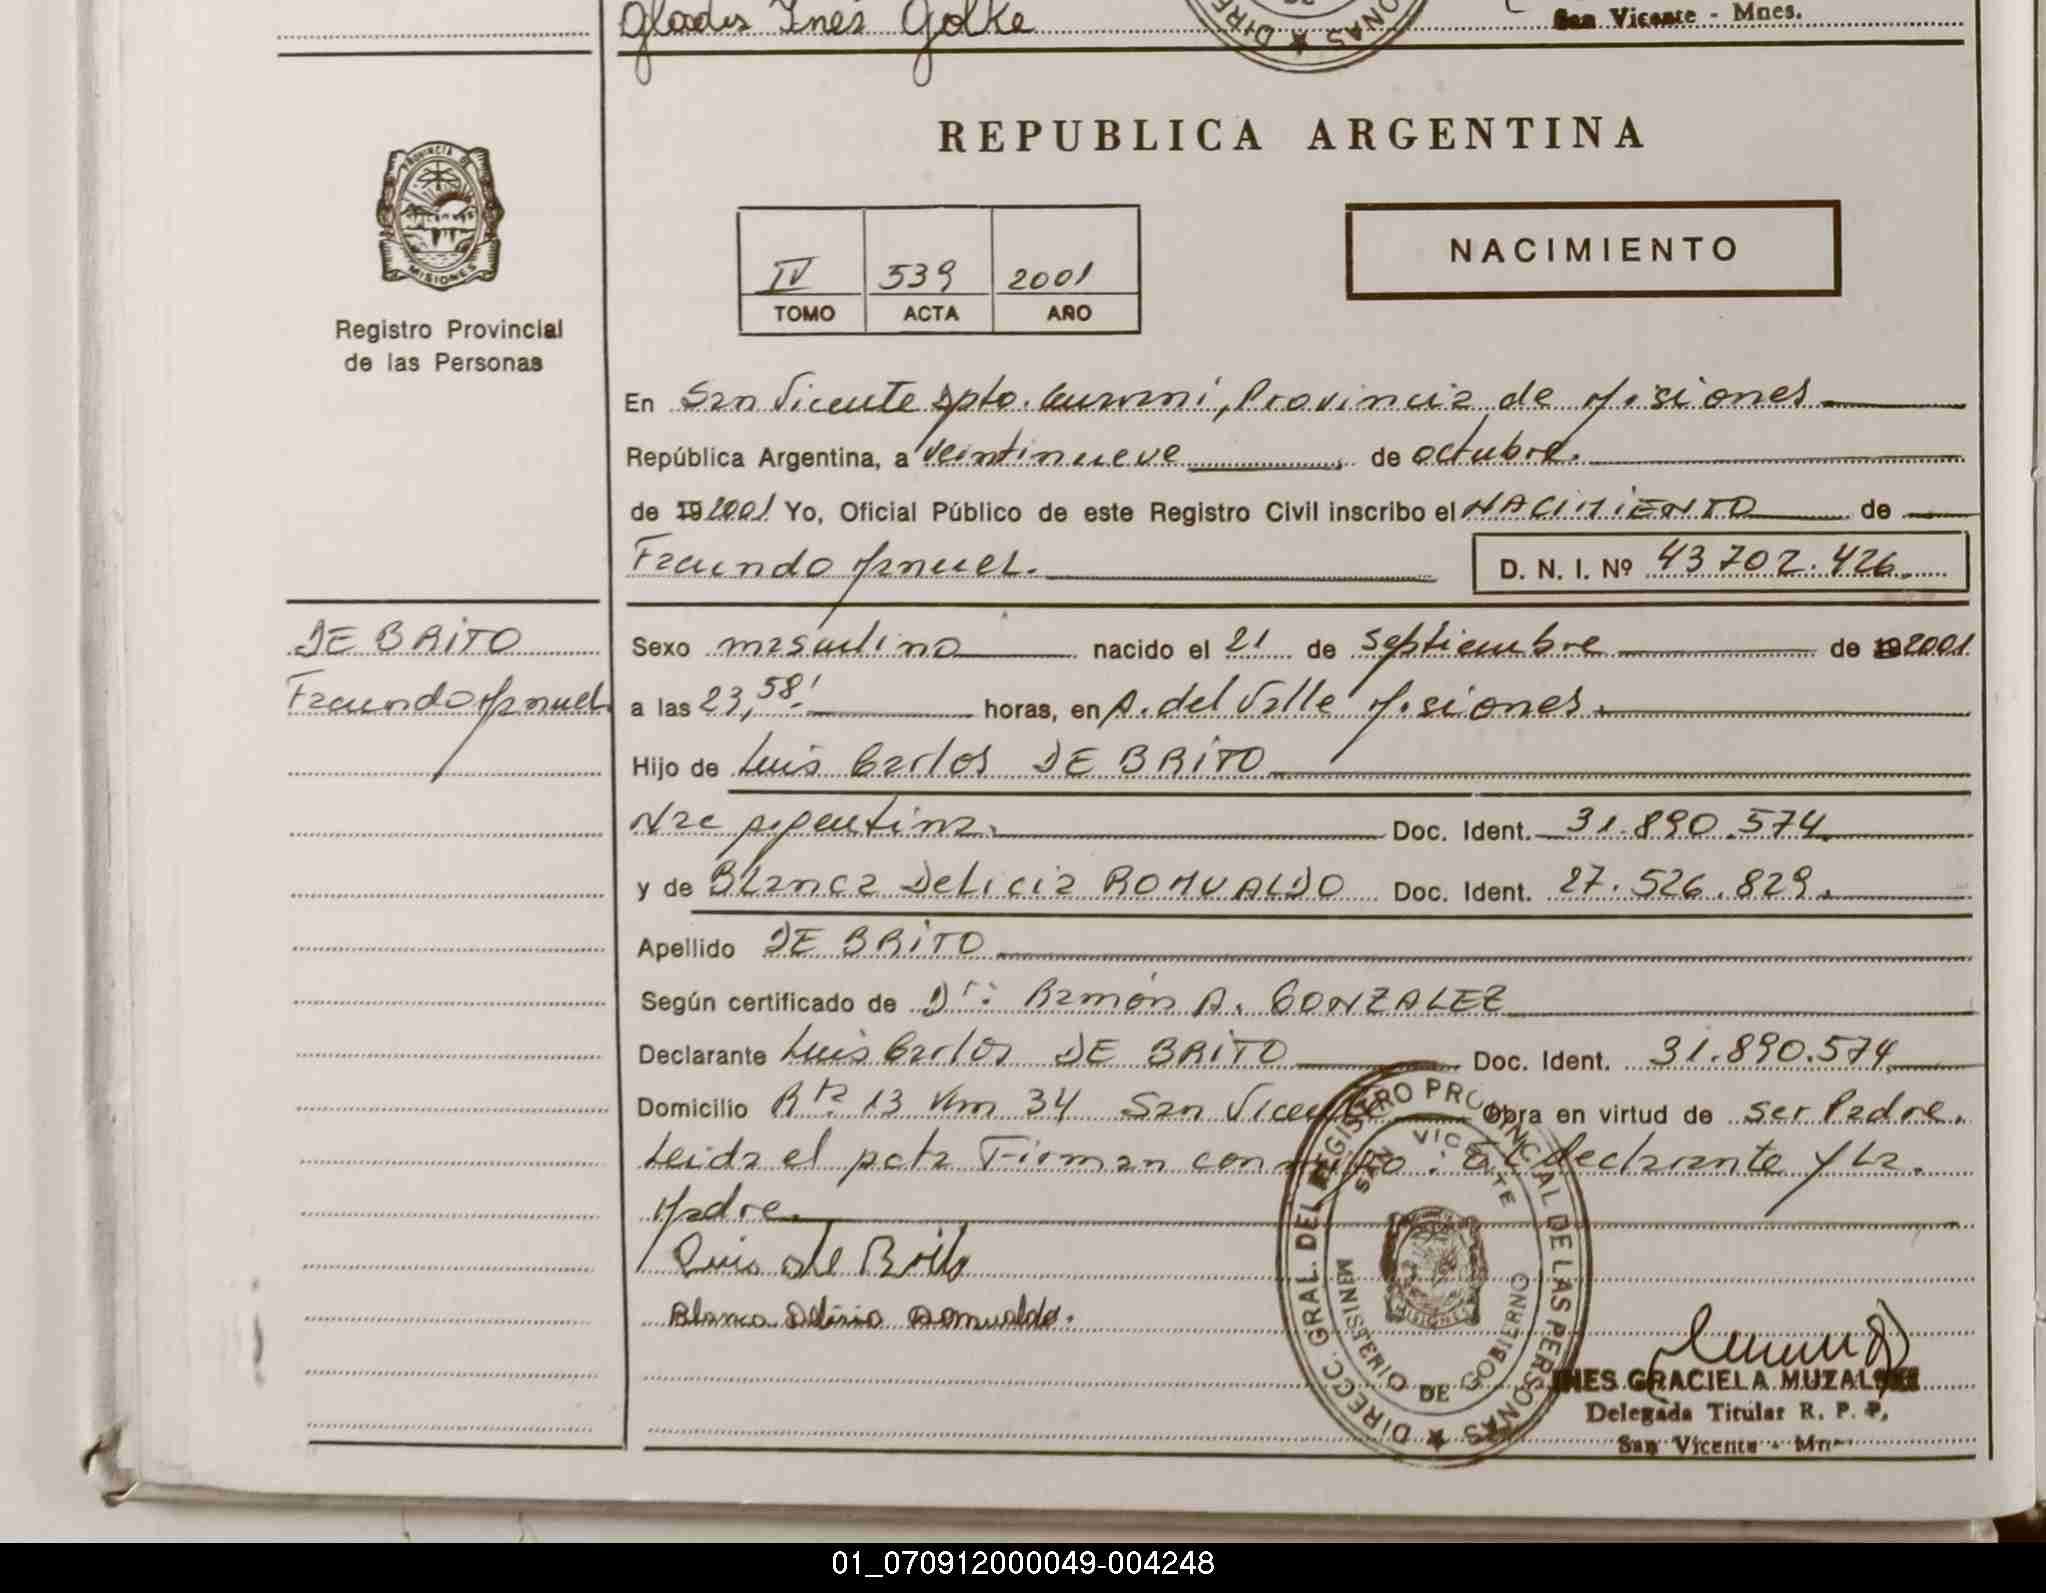 Gladis Inés Golke
San Vicente - Mnes.
REPUBLICA ARGENTINA
PROVINCIA DE MISIONES
Registro Provincial
de las Personas
IV 539 2001
TOMO ACTA AÑO
NACIMIENTO
En San Vicente Dpto. Guaraní, Provincia de Misiones
República Argentina, a veintinueve de octubre.
de 19 2001 Yo, Oficial Público de este Registro Civil inscribo el NACIMIENTO de
Facundo Manuel. D. N. I. Nº 43.702.426.
DE BRITO
Facundo Manuel
Sexo masculino nacido el 21 de septiembre de 19 2001
a las 23,58' horas, en A. del Valle Misiones.
Hijo de Luis Carlos DE BRITO
Nac Argentina. Doc. Ident. 31.890.574.
y de Blanca Delicia ROMUALDO Doc. Ident. 27.526.829.
Apellido DE BRITO
Según certificado de Dr: Ramón A. GONZALEZ
Declarante Luis Carlos DE BRITO Doc. Ident. 31.890.574.
Domicilio Rta 13 Km 34 San Vicente Obra en virtud de ser Padre.
Leida el acta Firman conmigo: el declarante y la
Madre.
Luis de Brito
Blanca Delicia Romualdo.
DIRECC. GRAL. DEL REGISTRO PROVINCIAL DE LAS PERSONAS
SAN VICENTE
MINISTERIO DE GOBIERNO
INES GRACIELA
Delegada Titular R. P. P.
San Vicente - Mn
01_070912000049-004248